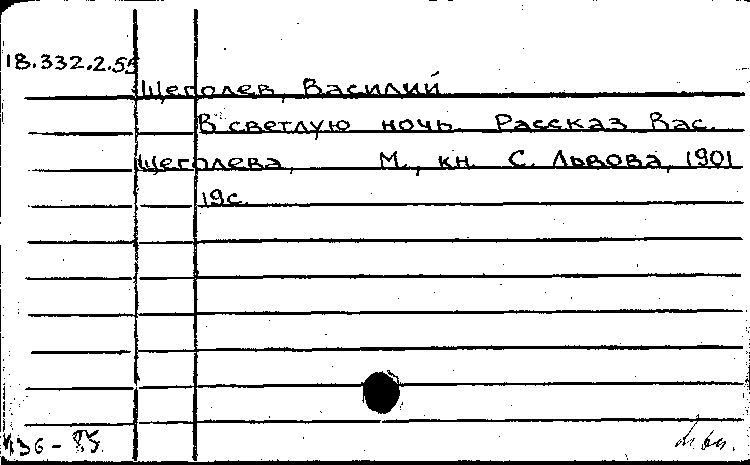 18.332.2.55
Щеголев, Василий
В светлую ночь. Рассказ Вас.
Щеголева, М., кн. С. Львова, 1901
19с.